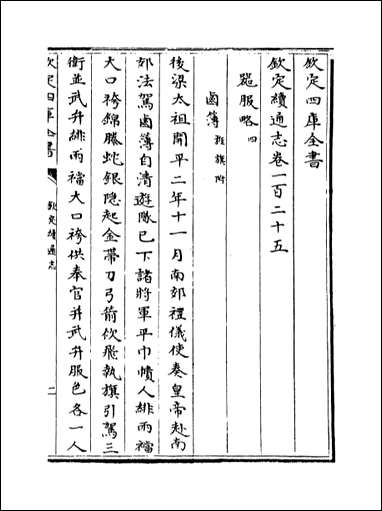 欽定四庫全書
欽定續通志卷一百二十五
器服略四
鹵簿旌旗附
後梁太祖開平二年十一月南郊禮儀使奏皇帝赴南
郊法駕鹵簿自清遊隊已下諸將軍平巾幘人緋兩襠
大口袴錦螣蛇銀隠起金帶刀弓箭佽飛執旗引駕三
衛並武弁緋兩襠大口袴供奉官并武弁服色各一人
欽定四庫全書
欽定續通志